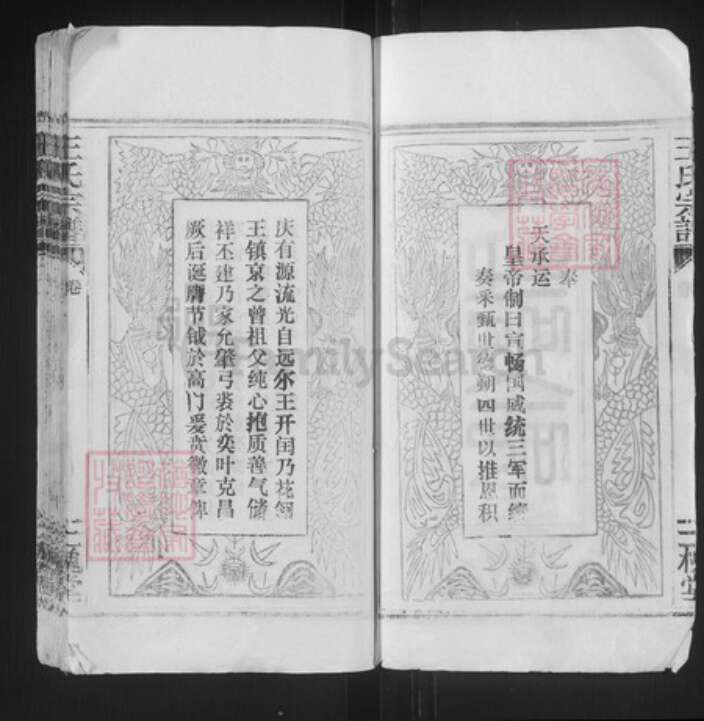 奉
天承运
皇帝制曰宣畅国威统三军而
奏采甄世绩朔四世以推恩积
庆有源流光自远尔王开闰乃花翎
王镇京之曾祖父纯心抱质善气储
祥丕建乃家允肇弓裘於奕叶克昌
厥后诞膺节钺於高门爰贲徽章
王氏宗谱
王氏宗谱
卷
三槐堂
三槐堂
FamilySearch